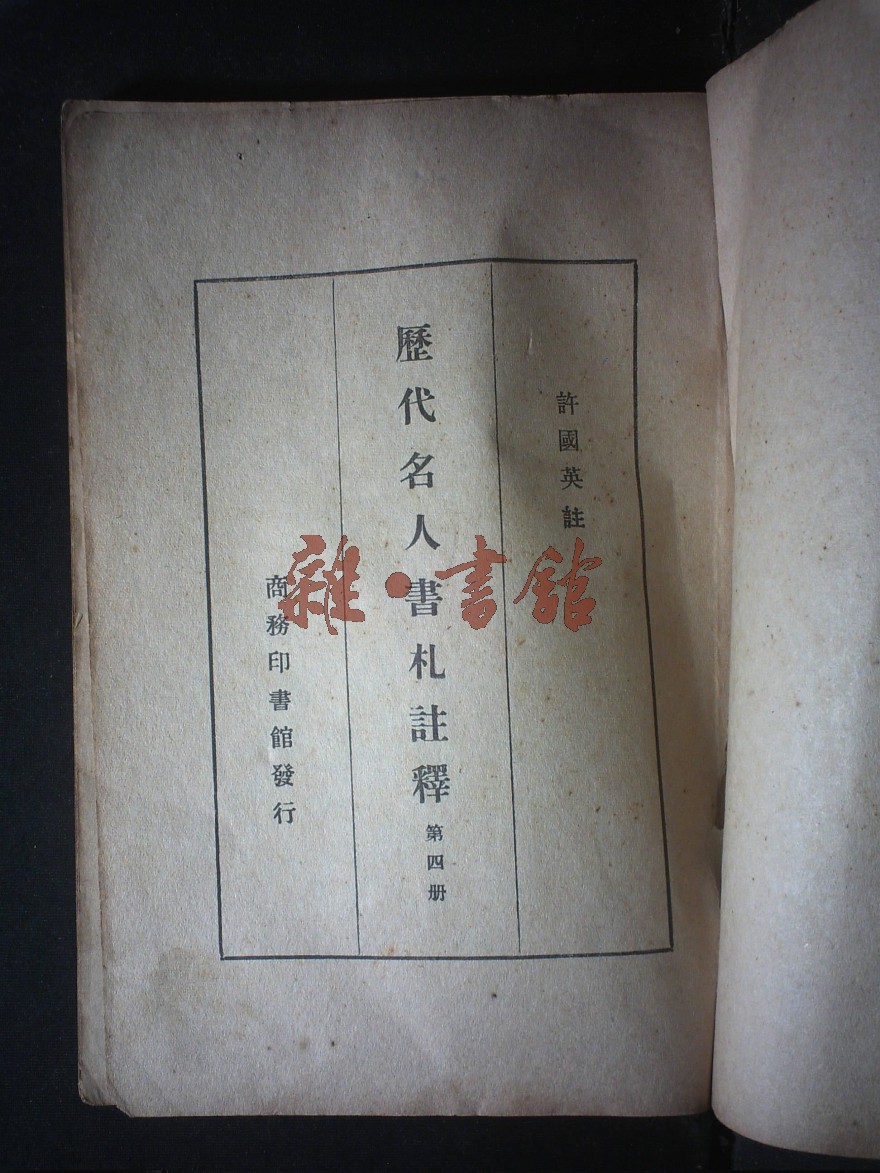 許國英註
歷代名人書札註釋 第四册
商務印書館發行
雜·書館